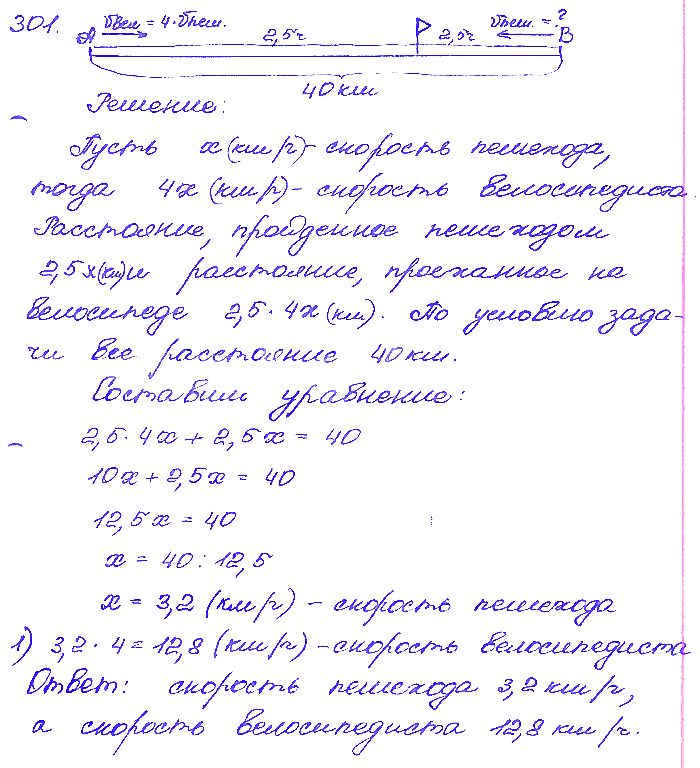 301. Vвел = 4·Vпеш. Vпеш. = ?
А 2,5ч 2,5ч В
40 км
Решение:
Пусть х (км/ч) - скорость пешехода,
тогда 4х (км/ч) - скорость велосипедиста.
Расстояние, пройденное пешеходом
2,5х(км) и расстояние, проеханное на
велосипеде 2,5·4х (км). По условию зада-
чи все расстояние 40 км.
Составим уравнение:
2,5·4х + 2,5х = 40
10х + 2,5х = 40
12,5х = 40
х = 40 : 12,5
х = 3,2 (км/ч) - скорость пешехода
1) 3,2·4 = 12,8 (км/ч) - скорость велосипедиста
Ответ: скорость пешехода 3,2 км/ч,
а скорость велосипедиста 12,8 км/ч.